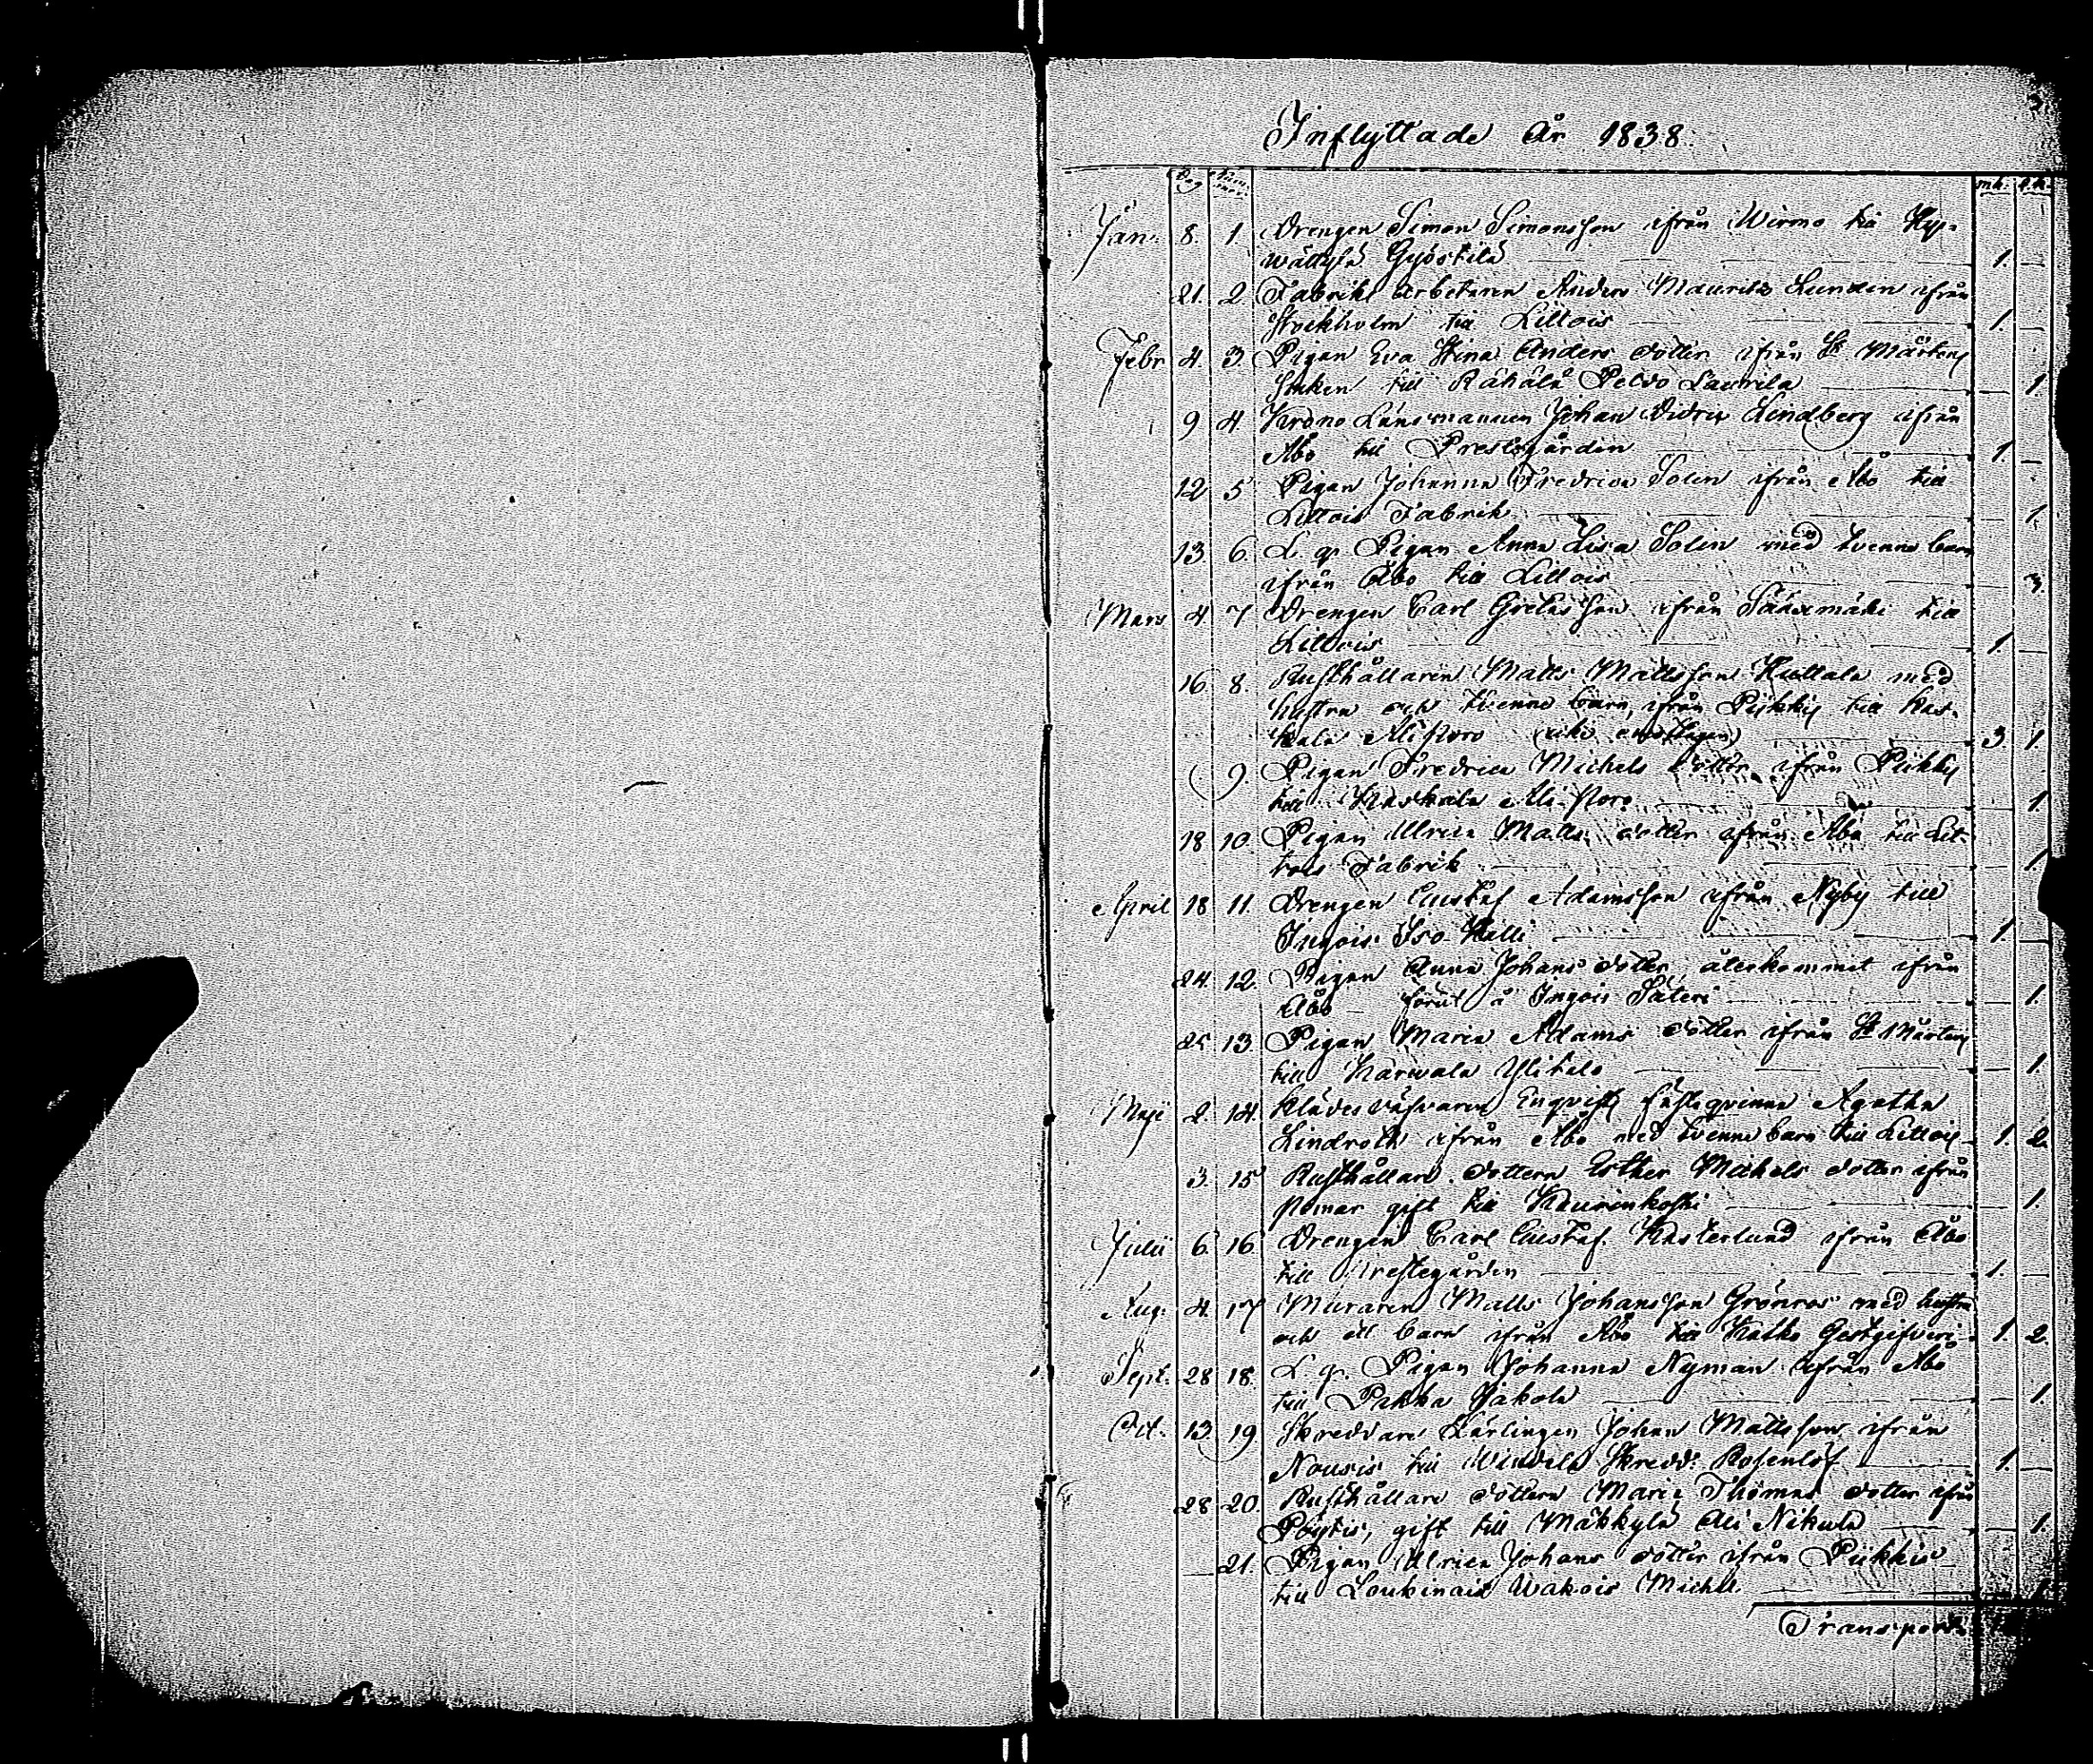 3
Inflyttade År 1838.
Dag Num mer. mk. q.k.
Jan. 8. 1. Drengen Simon Simonsson ifrån Wirmo till Hyr-
wättylä Gyöstilä 1.
21. 2 Fabriks Arbetaren Anders Maurits Lunden ifrån
Stockholm till Littois 1.
Febr 4. 3. Pigan Eva Stina Anders dotter ifrån St Mårtens
till Rähälä Peldo Laurila 1.
9 4 Krono Länsmannen Johan Didric Lindberg ifrån
Åbo till Prestegården 1.
12 5 Pigan Johanna Fredrica Solin ifrån Åbo till
Littois Fabrik 1
13. 6 L. q. Pigan Anna Lisa Solin med tvenne barn
ifrån Åbo till Littois 3.
Mars 4 7 Drengen Carl Gretasson ifrån Sääxmäki till
Littois 1
16 8. Rusthållaren Matts Mattsson Huttala med
hustru och tvenne barn, ifrån Piikkis till Kas-
kala Alistoro 3. 1.
9. Pigan Fredrica Michels dotter ifrån Piikkis
till Kaskala Ali-storo 1.
18 10. Pigan Ulrica Matts dotter ifrån Åbo till Lit-
tois Fabrik 1
April 18 11. Drengen Gustaf Adamsson ifrån Nyby till
Ingois Iso-Källi 1
24. 12. Pigan Anna Johans dotter, återkommit ifrån
Åbo förut å Ingois Säteri 1.
25 13. Pigan Maria Adams dotter ifrån St Mårtens
till Karwala Ylitalo 1
Maji 2. 14. Klädesväfvaren Enqvists fästeqvinna Agatha
Lindroth ifrån Åbo med tvenne barn till Littois 1. 2.
3. 15 Rusthållare dottern Esther Michels dotter ifrån
Pemar gift till Kaurinkoski 1.
Julii 6. 16. Drengen Carl Gustaf Kasterlund ifrån Åbo
till Prestegården 1.
Aug. 4. 17 Muraren Matts Johansson Grönroos med hustru
och ett barn ifrån Åbo till Katko Gestgifveri 1. 2.
Sept. 28 18. L. q. Pigan Johanna Nyman ifrån Åbo
till Pakka Jakola 1.
Oct. 13. 19 Skreddare Lärlingen Johan Mattsson ifrån
Nousis till Windelä Skredd: Rosenlöf 1.
28 20. Rusthållare dottern Maria Thomas dotter ifrån
Pöytis, gift till Mäkkylä Ali Nikula 1.
21. Pigan Ulrica Johans dotter ifrån Piikkis
till Loukinais Wakois Michel. 1.
Transport.